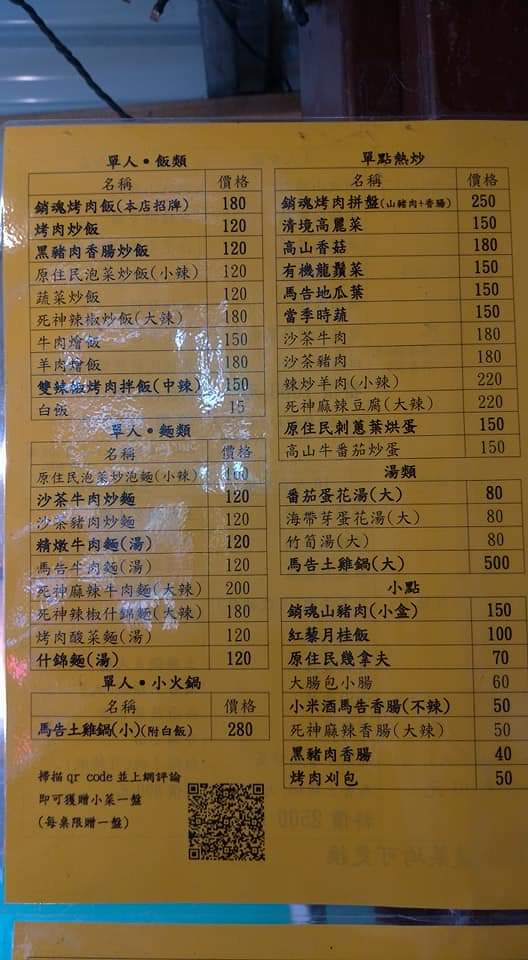 單人•飯類
名稱 價格
銷魂烤肉飯(本店招牌) 180
烤肉炒飯 120
黑豬肉香腸炒飯 120
原住民泡菜炒飯(小辣) 120
蔬菜炒飯 120
死神辣椒炒飯(大辣) 180
牛肉燴飯 150
羊肉燴飯 180
雙辣椒烤肉拌飯(中辣) 150
白飯 15
單人•麵類
名稱 價格
原住民泡菜炒泡麵(小辣) 100
沙茶牛肉炒麵 120
沙茶豬肉炒麵 120
精燉牛肉麵(湯) 120
馬告牛肉麵(湯) 120
死神麻辣牛肉麵(大辣) 200
死神辣椒什錦麵(大辣) 180
烤肉酸菜麵(湯) 120
什錦麵(湯) 120
單人•小火鍋
名稱 價格
馬告土雞鍋(小)(附白飯) 280
掃描 qr code 並上網評論
即可獲贈小菜一盤
(每桌限贈一盤)
單點熱炒
名稱 價格
銷魂烤肉拼盤(山豬肉+香腸) 250
清境高麗菜 150
高山香菇 180
有機龍鬚菜 150
馬告地瓜葉 150
當季時蔬 150
沙茶牛肉 180
沙茶豬肉 180
辣炒羊肉(小辣) 220
死神麻辣豆腐(大辣) 220
原住民刺蔥葉烘蛋 150
高山牛番茄炒蛋 150
湯類
番茄蛋花湯(大) 80
海帶芽蛋花湯(大) 80
竹筍湯(大) 80
馬告土雞鍋(大) 500
小點
銷魂山豬肉(小盒) 150
紅藜月桂飯 100
原住民幾拿夫 70
大腸包小腸 60
小米酒馬告香腸(不辣) 50
死神麻辣香腸(大辣) 50
黑豬肉香腸 40
烤肉刈包 50